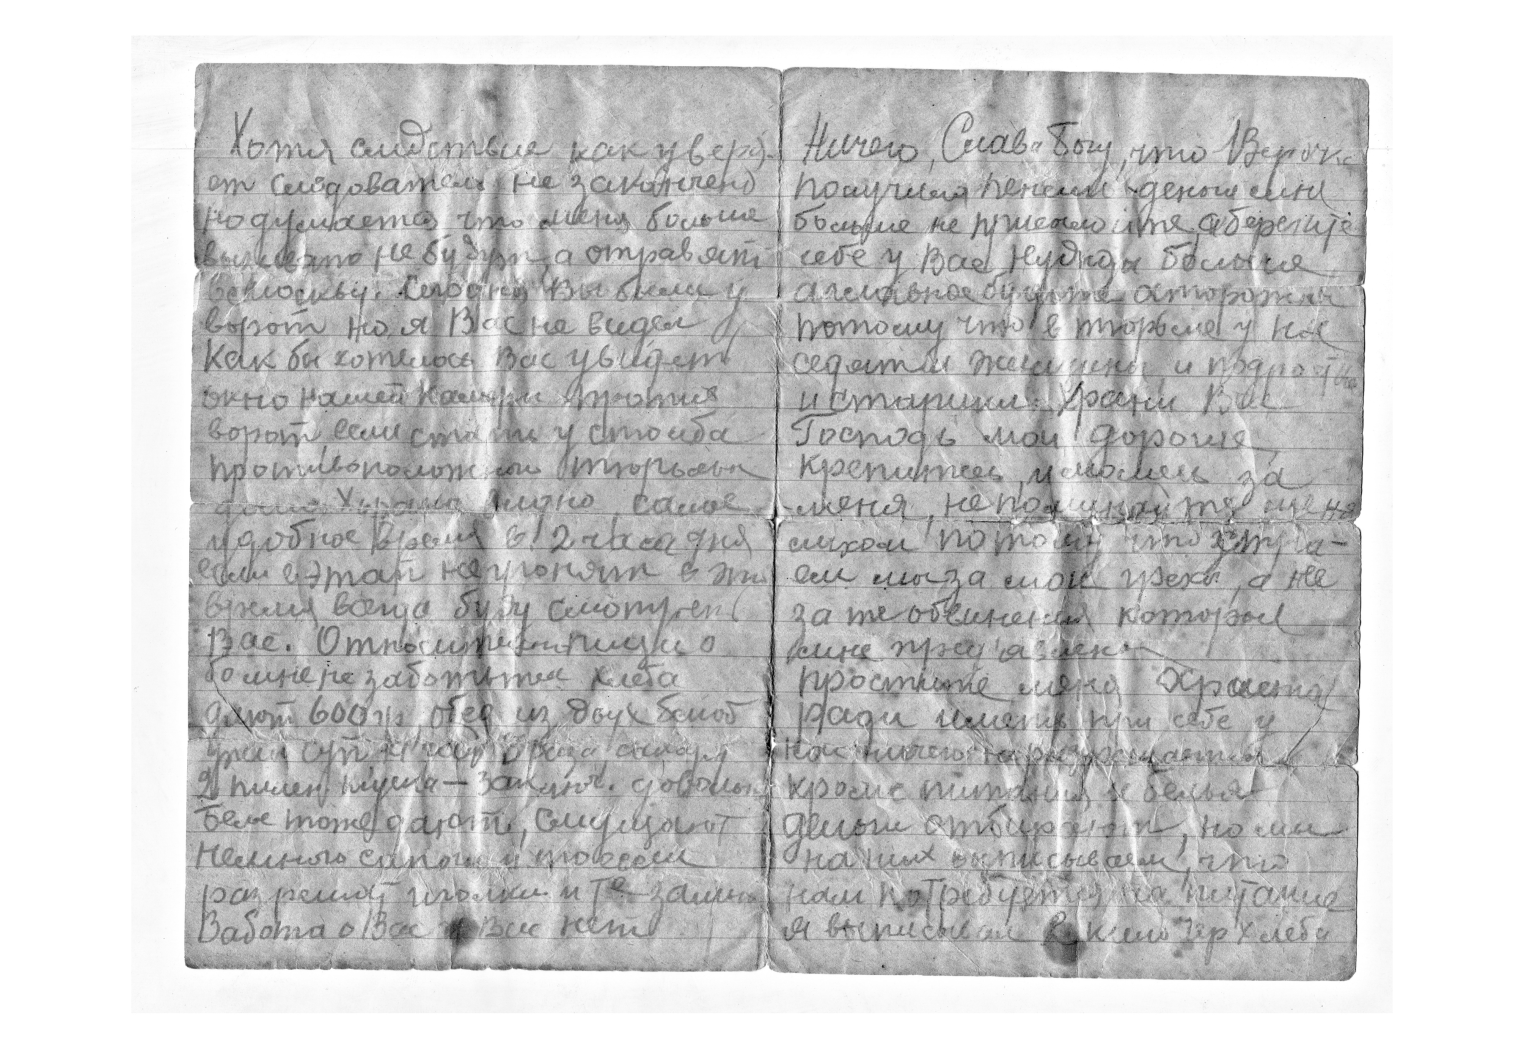 Хотя следствие как уверя-
ет следователь не закончено
но думается что меня больше
вызывать не будут, а отправят
в Москву. Сегодня Вы были у
ворот но я Вас не видел
Как бы хотелось Вас увидеть
окно нашей камеры против
ворот если стать у столба
противоположного тюрьмы
самое
удобное время в 2 часа дня
если в этап не угонят в это
время всегда буду смотреть
Вас. Относительно пищи о
бо мне не заботьтесь хлеба
дают 600 гр обед из двух блюд
ужин суп чай 3 раза сахару
2 пилен. - заключ. довольн
Белье тоже дают, смущают
немного сапоги
разрешат иголки и те
Забота о Вас у Вас нет
Ничего, Слава Богу, что Верочке
получили пенсии деньги мне
больше не присылайте, сберегите
себе у Вас нужды больше
а главное будьте осторожны
потому что в тюрьме у нас
седят и женщины и подростки
и старики. Храни Вас
Господь мои дорогие,
крепитесь, молись за
меня, не поминайте меня
лихом потому что
ем мы за мои грехи, а не
за те обвинения которые
мне предъявлены
простите меня Христа
ради иметь при себе у
нас ничего не разрешается
кроме питания и белья
деньги отбирают, но мы
на них выписываем, что
нам потребуется на питание
я выписывал 2 кило чер хлеба